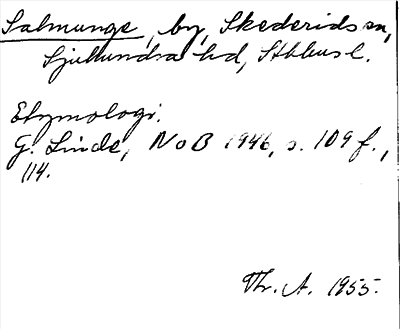 Salmunge, by, Skederids sn,
Sjuhundra hd, Sthlms l.
Etymologi.
G. Linde, NoB 1946, s. 109 f.,
114.
Th. A. 1955.